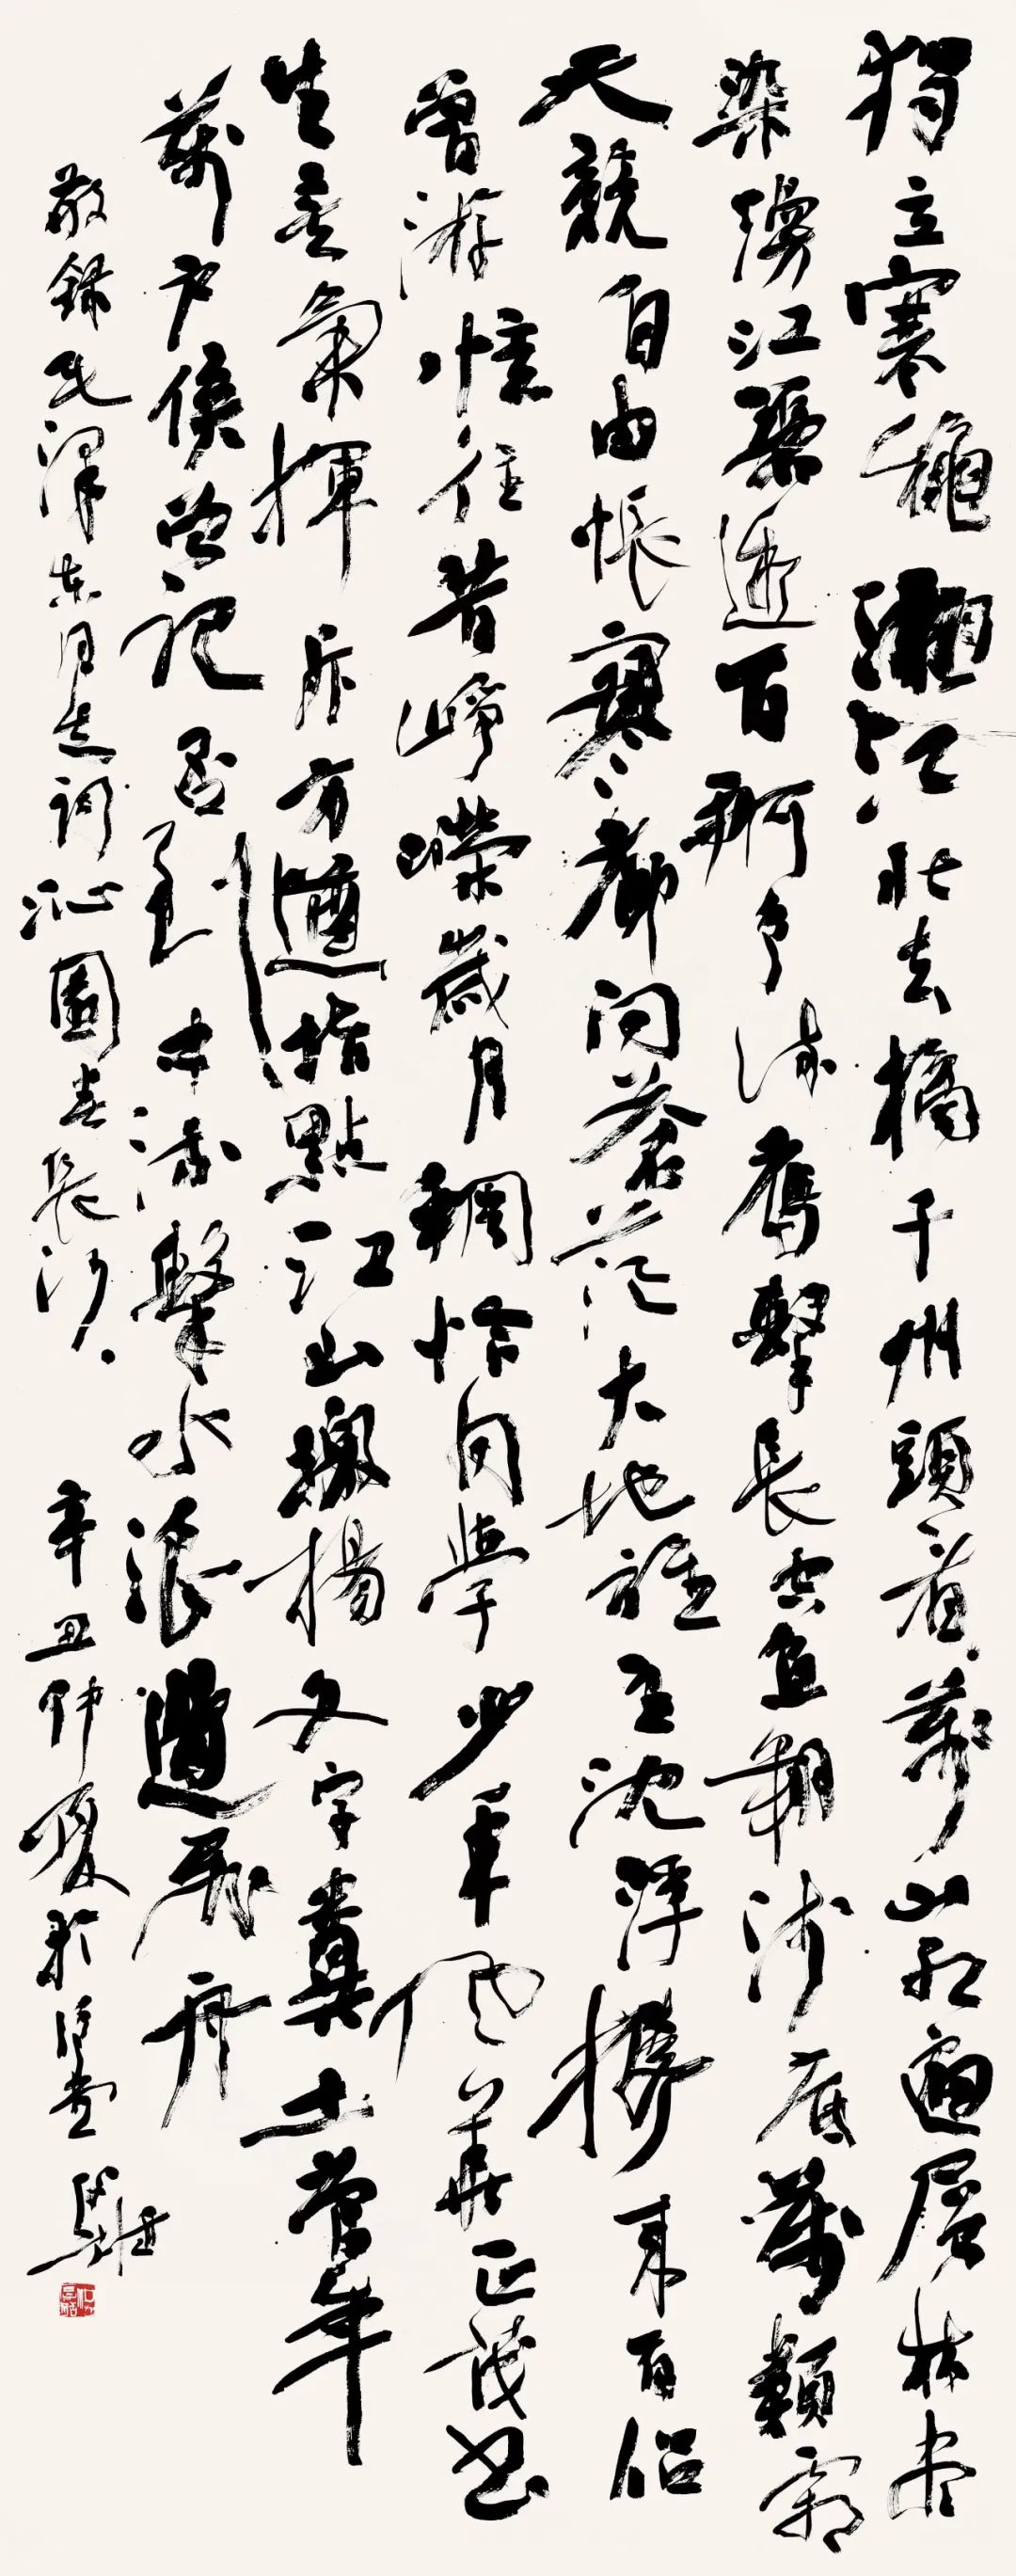 獨立寒穐湘江北去橘子州頭看萬山紅遍層林盡
染漫江碧透百舸爭流鷹擊長空魚翔淺底萬類霜
天競自由悵寥廓問蒼茫大地誰主沈浮攜來百侣
曾游憶往昔崢嶸歲月稠恰同學少年風華正茂書
生意氣揮斥方遒指點江山激揚文字糞土當年
萬户侯曾記否到中流擊水浪遏飛舟
敬錄毛澤東同志詞沁園春長沙 辛丑仲夏於堂